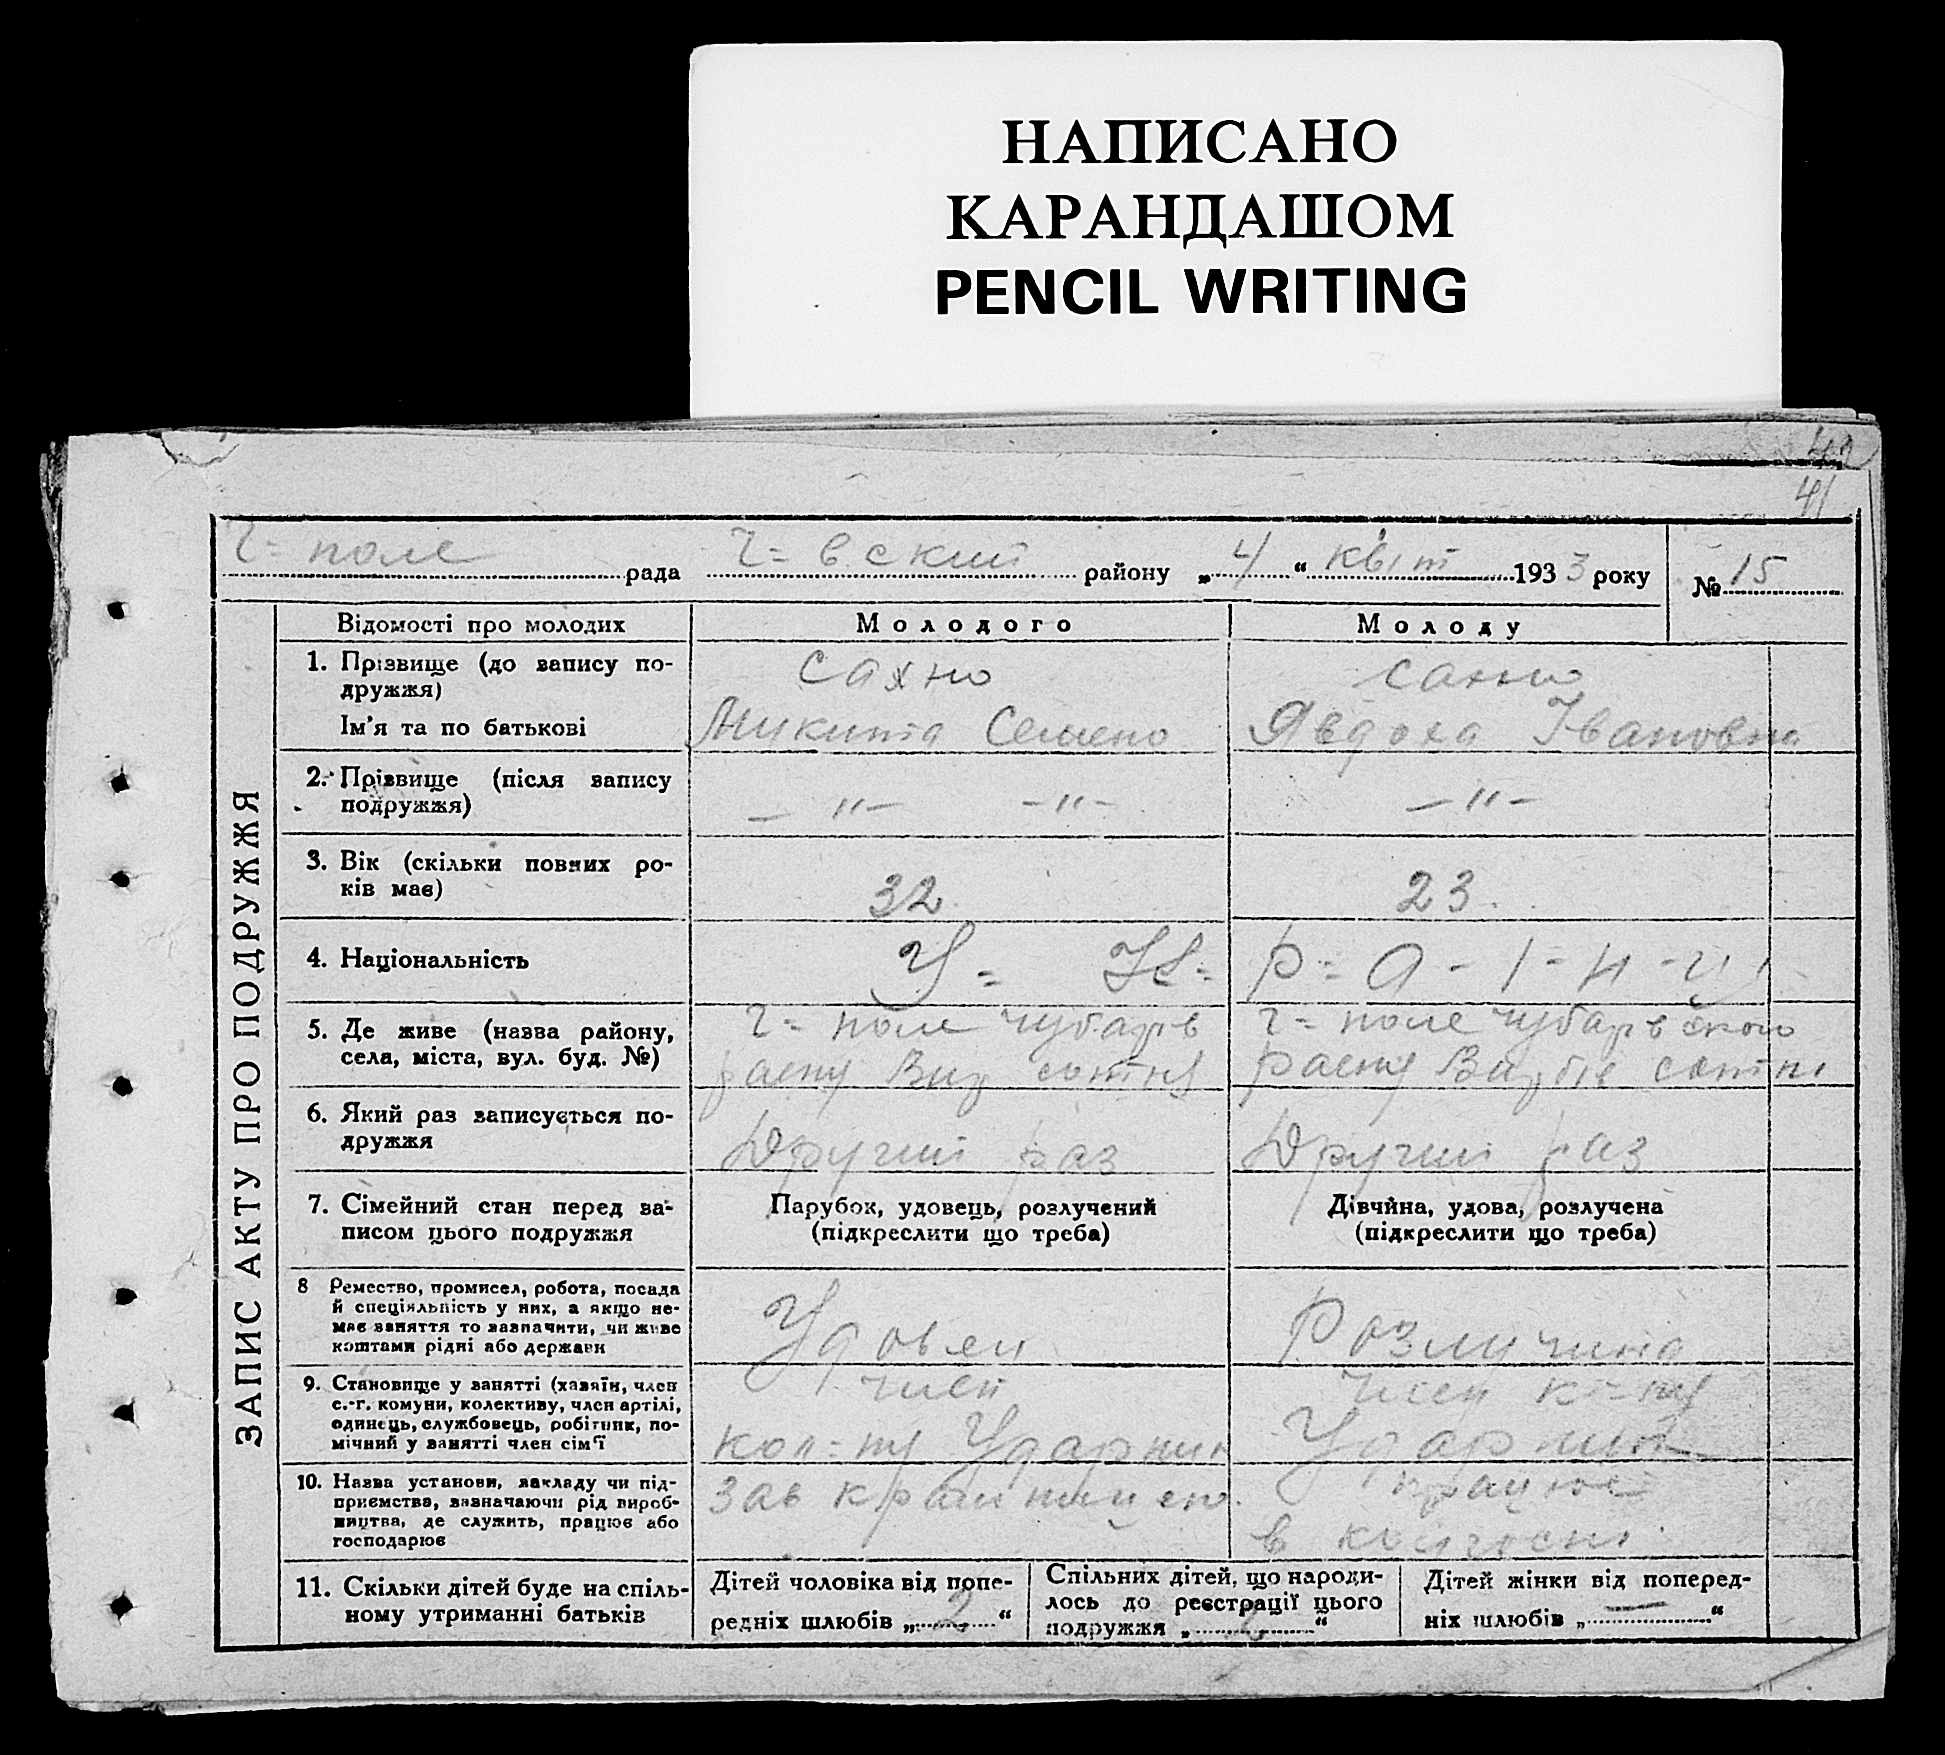 НАПИСАНО
КАРАНДАШОМ
PENCIL WRITING
42
41
Г= поле рада Ч= вский району „4“ квіт 1933 року № 15
ЗАПИС АКТУ ПРО ПОДРУЖЖЯ
Відомості про молодих
Молодого
Молоду
1. Прізвище (до запису по-
дружжя)
Ім’я та по батькові
Сахно
Микита Семено
Сахно
Явдоха Івановна
2. Прізвище (після запису
подружжя)
– " – – " –
– " –
3. Вік (скільки повних ро-
ків має)
32
23
4. Національність
У= К=
Р= А - І - Н - Ц
5. Де живе (назва району,
села, міста, вул. буд. №)
Г= поле Чубарів
раену сотні
Г= поле Чубарівского
раену сотні
6. Який раз записується по-
дружжя
Другий раз
Другий раз
7. Сімейний стан перед за-
писом цього подружжя
Парубок, удовець, розлучений
(підкреслити що треба)
Дівчина, удова, розлучена
(підкреслити що треба)
8 Ремество, промисел, робота, посада
й спеціяльність у них, а якщо не-
має заняття то зазначити, чи живе
коштами рідні або держави
Удовец
Розлучина
9. Становище у занятті (хазяїн, член
с.-г. комуни, колективу, член артілі,
одинець, службовець, робітник, по-
мічний у занятті член сім’ї
член
кол=ну Ударник
член к=ну
Ударник
10. Назва установи, закладу чи під-
приємства, зазначаючи рід вироб-
ництва, де служить, працює або
господарює
Зав крамницею.
працює
в колгоспі
11. Скільки дітей буде на спіль-
ному утриманні батьків
Дітей чоловіка від попе-
редніх шлюбів „ 2 “
Спільних дітей, що народи-
лось до реєстрації цього
подружжя „ 2 “
Дітей жінки від поперед-
ніх шлюбів „ — “